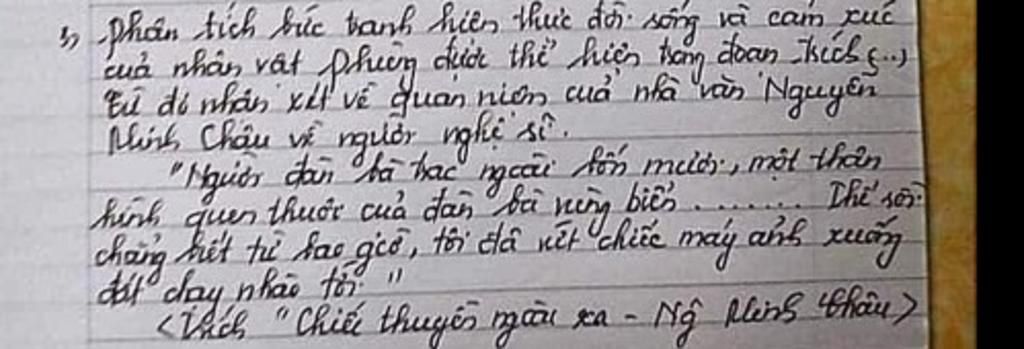 3, Phân tích bức tranh hiện thực đời sống và cảm xúc
của nhân vật Phùng được thể hiện trong đoạn trích (...)
từ đó nhận xét về quan niệm của nhà văn Nguyễn
Minh Châu về người nghệ sĩ.
"Người đàn bà trạc ngoài bốn mươi, một thân
hình quen thuộc của đàn bà vùng biển ........ Thế rồi
chẳng biết từ bao giờ, tôi đã vứt chiếc máy ảnh xuống
đất chạy nhào tới."
<Trích "Chiếc thuyền ngoài xa - Ng Minh Châu>